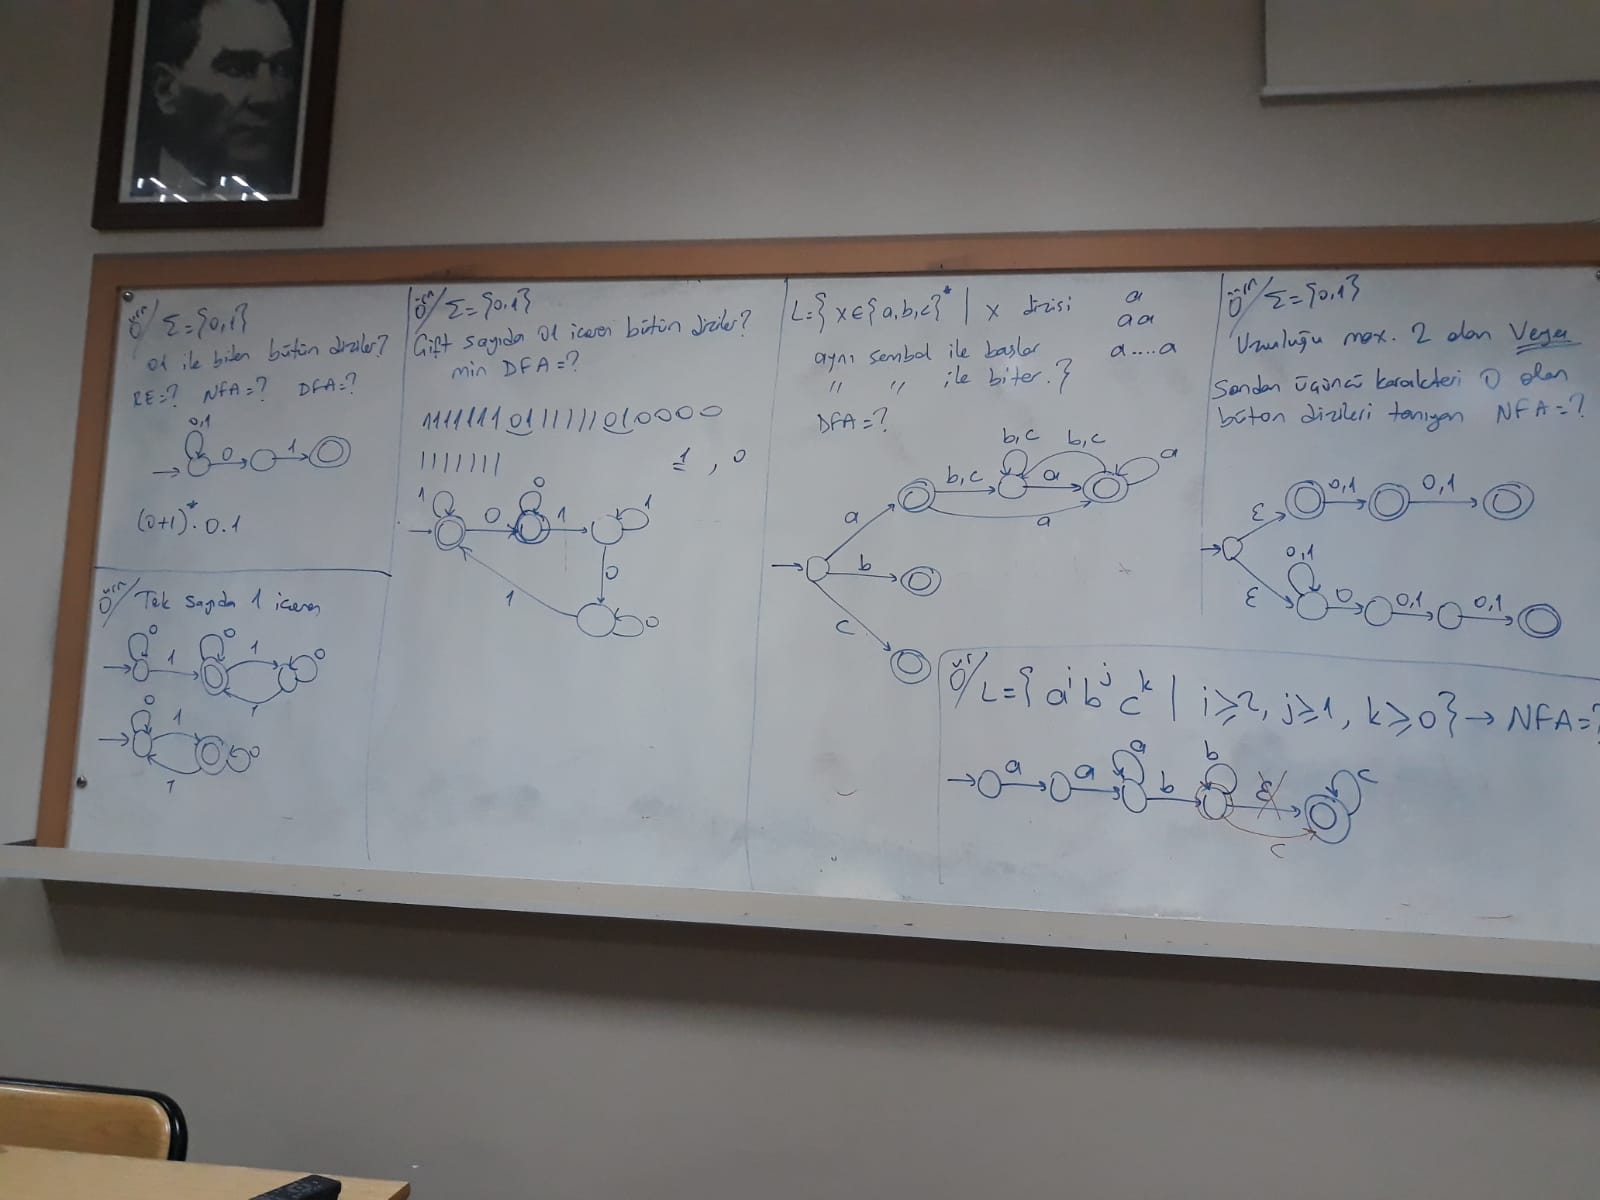 Örn/ Σ={0,1}
01 ile biten bütün diziler?
RE=? NFA=? DFA=?
0,1
0 1
(0+1)*.0.1
Örn/ Tek sayıda 1 içeren
0 0 0
1 1
1
0
1 0
1
Örn/ Σ={0,1}
Çift sayıda 01 içeren bütün diziler?
min DFA=?
11111111 01111111010000
1111111
1, 0
1 0 0 1 1
0
1 0
L={ x∈{a,b,c}* | x dizisi
aynı sembol ile başlar
" " ile biter.}
DFA=?
a
aa
a....a
b,c b,c a
b,c a
a
a
b
c
Örn/ Σ={0,1}
Uzunluğu max. 2 olan Veya
Sondan üçüncü karakteri 0 olan
bütün dizileri tanıyan NFA=?
0,1 0,1
ε
0,1
ε 0 0,1 0,1
Ör/ L={ aⁱ bʲ cᵏ | i⩾2, j⩾1, k⩾0} → NFA=?
a b c
a a b ε
c